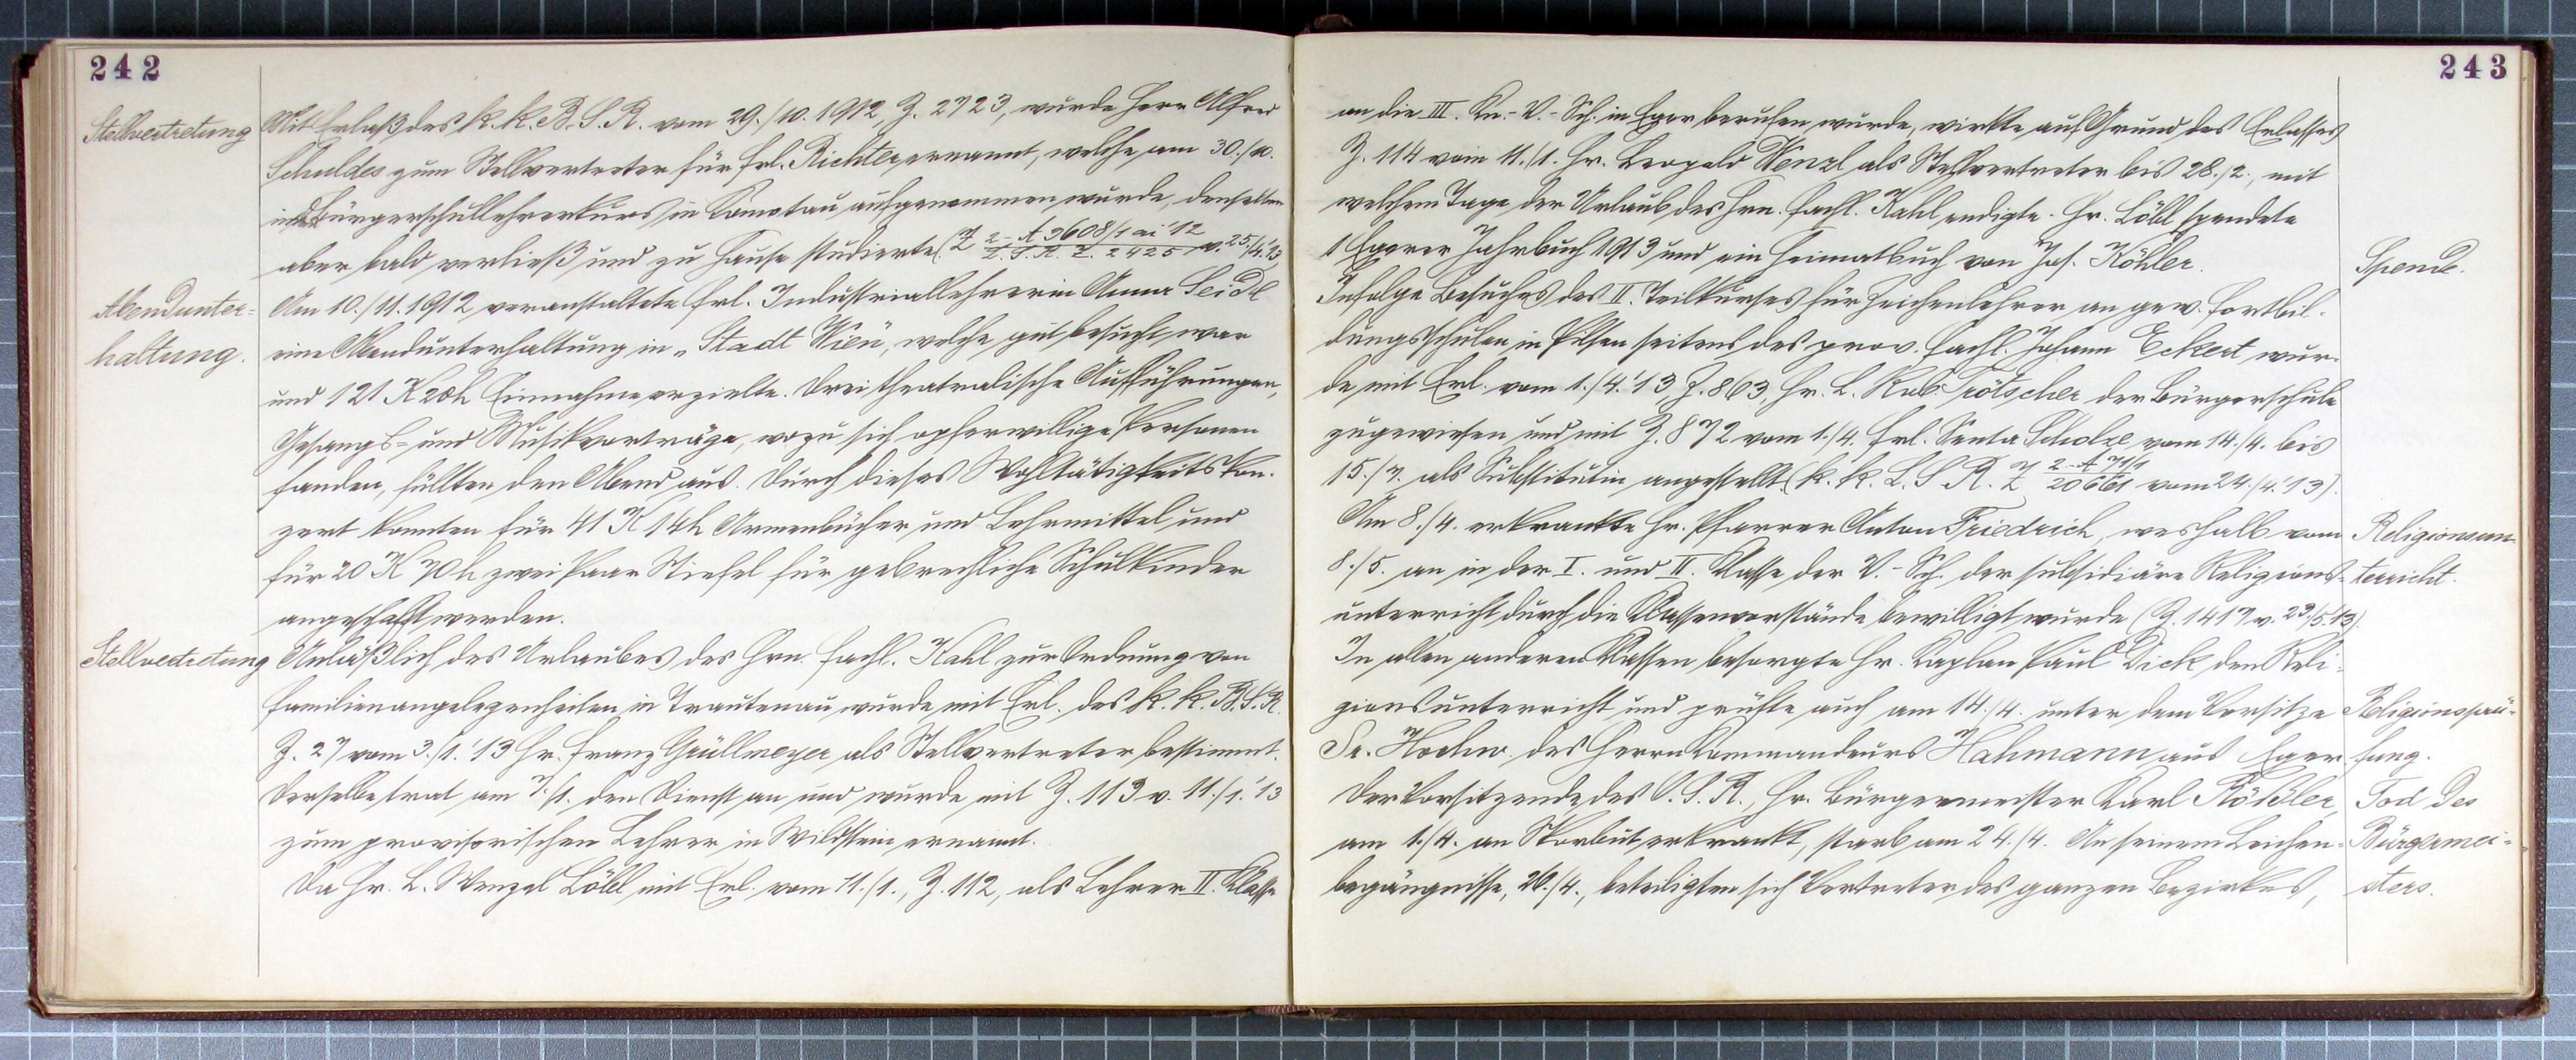 242
Stellvertretung
Mit Erlaß des k. k. B. S. R. vom 29./10. 1912, Z. 2723, wurde Herr Alfred
Schuldes zum Stellvertreter für Frl. Richter ernannt, welche am 30./10.
in den Bürgerschullehrerkurs in Komotau aufgenommen wurde, denselben
aber bald verließ und zu Hause studierte (Z 2-A 3608/1 ai 12 L. S. R. Z. 2425 v. 25./4. '13
Abendunter-
haltung.
Am 10./11. 1912 veranstaltete Frl. Industriallehrerin Anna Seidl
eine Abendunterhaltung in „Stadt Wien", welche gut besucht war
und 121 K 20 h Einnahme erzielte. Drei theatralische Aufführungen,
Gesangs- und Musikvorträge, wozu sich opferwillige Personen
fanden, füllten den Abend aus. Durch dieses Wohltätigkeitskon-
zert konnten für 41 K 14 h Armenbücher und Lehrmittel und
für 20 K 70 h zwei Paar Stiefel für gebrechliche Schulkinder
angeschafft werden.
Stellvertretung
Anläßlich des Urlaubes des Hrn. Fachl. Kahl zur Ordnung von
Familienangelegenheiten in Trautenau wurde mit Erl. des k. k. B. S. R.
Z. 27 vom 3./1. '13 Hr. Franz Grüllmeyer als Stellvertreter bestimmt.
Derselbe trat am 7./1. den Dienst an und wurde mit Z. 113 v. 11./1. '13
zum provisorischen Lehrer in Wildstein ernannt.
Da Hr. L. Wenzel Löbl mit Erl. vom 11./1., Z. 112, als Lehrer II. Klasse
243
an die III. Kn.-V.-Sch. in Eger berufen wurde, wirkte auf Grund des Erlasses
Z. 114 vom 11./1. Hr. Leopold Wenzl als Stellvertreter bis 28./2., mit
welchem Tage der Urlaub des Hrn. Fachl. Kahl endigte. Hr. Löbl spendete
1 Egerer Jahrbuch 1913 und ein Heimatbuch von Jos. Köhler.
Spende.
Infolge Besuches des II. Teilkurses für Zeichenlehrer an gew. Fortbil-
dungsschulen in Pilsen seitens des prov. Fachl. Johann Eckert wur-
de mit Erl. vom 1./4. '13 Z. 863, Hr. L. Rub. Trötscher der Bürgerschule
zugewiesen und mit Z. 872 vom 1./4. Frl. Senta Scholze vom 14./4. bis
15./7. als Substitutin angestellt (k. k. L. S. R. Z 2-A 711 20661 vom 24./4. '13).
Am 8./4. erkrankte Hr. Pfarrer Anton Friedrich, weshalb vom
Religionsun-
8./5. an in der I. und II. Klasse der V.-Sch. der subsidiäre Religions-
terricht.
unterricht durch die Klassenvorstände bewilligt wurde (Z. 1417 v. 23./5. '13).
In allen anderen Klassen besorgte Hr. Kaplan Paul Dick den Reli-
gionsunterricht und prüfte auch am 14./4. unter dem Vorsitze
Religionsprü-
Sr. Hochw. des Herrn Kommandeurs Hahmann aus Eger
fung.
Der Vorsitzende des O. S. R., Hr. Bürgermeister Karl Rößler,
Tod des
am 1./4. an Skorbut erkrankt, starb am 24./4. An seinem Leichen-
Bürgermei-
begängnisse, 26./4., beteiligten sich Vertreter des ganzen Bezirkes,
sters.